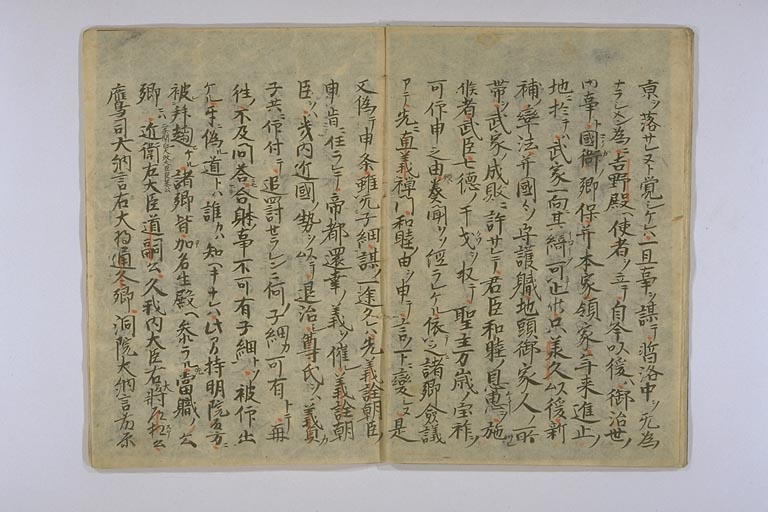 京ヲ落サレヌト覚シケレハ一旦事ヲ謀テ暫洛中ヲ无為
ナラシメン為ニ吉野殿ヘ使者ヲ立テ自今以後御治世ノ
内事国衙郷保并本家領家年来進止
地於テハ武家一向其綺可止候只承久以後新
補率法并国々守護職地頭御家人所
帯ヲ武家ノ成敗ニ許サレテ君臣和睦ノ恩恵ヲ施
候者武臣七徳ノ干戈ヲ収テ聖主万歳ノ宝祚ヲ
可仰申之由奏聞ヲソ経ラレケル依之諸卿僉議
アテ先ニ直義禅門和睦由ヲ申テ言下ニ変ヒヌ是
又偽テ申条雖无子細謀ノ一途タレハ先義詮朝臣ノ
申旨ニ任ラレテ帝都還幸ノ義ヲ催シ義詮朝
臣ヲハ畿内近國ノ勢ヲ以テ退治シ尊氏ヲハ義貞カ
子共ニ仰付テ追罸せラレンニ何ノ子細カ可有トテ再
往ノ不及問答合躰事不可有子細トソ被仰出
ケル手ニ偽道トハ誰カハ知ヘキナレハ此乃持明院殿方ニ
被拜趨ケル諸卿皆賀名生殿ヘ参ラル當職ノ公
卿ニハ近衛左大臣道嗣公久我内大臣右将
鷹司大納言右大将通冬卿洞院大納言